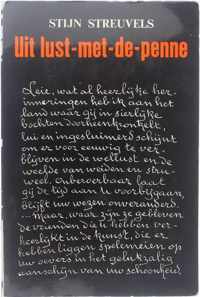 STIJN STREUVELS
Uit lust-met-de-penne
Leie, wat al heerlijke her-
inneringen heb ik aan het
land waar gij in sierlijke
bochten doorheenkronkelt,
lui en ingesluimerd schijnt
om er voor eeuwig te ver-
blijven in de wellust en de
weelde van weiden en stru-
weel. Onberoerbaar laat
gij de tijd aan u voorbijgaan,
blijft uw wezen onveranderd.
...Maar, waar zijn ze gebleven
de vrienden die u hebben ver-
heerlijkt in de kunst, die er
hebben liggen spelemeien op
uw oevers in het gelukzalig
aanschijn van uw schoonheid